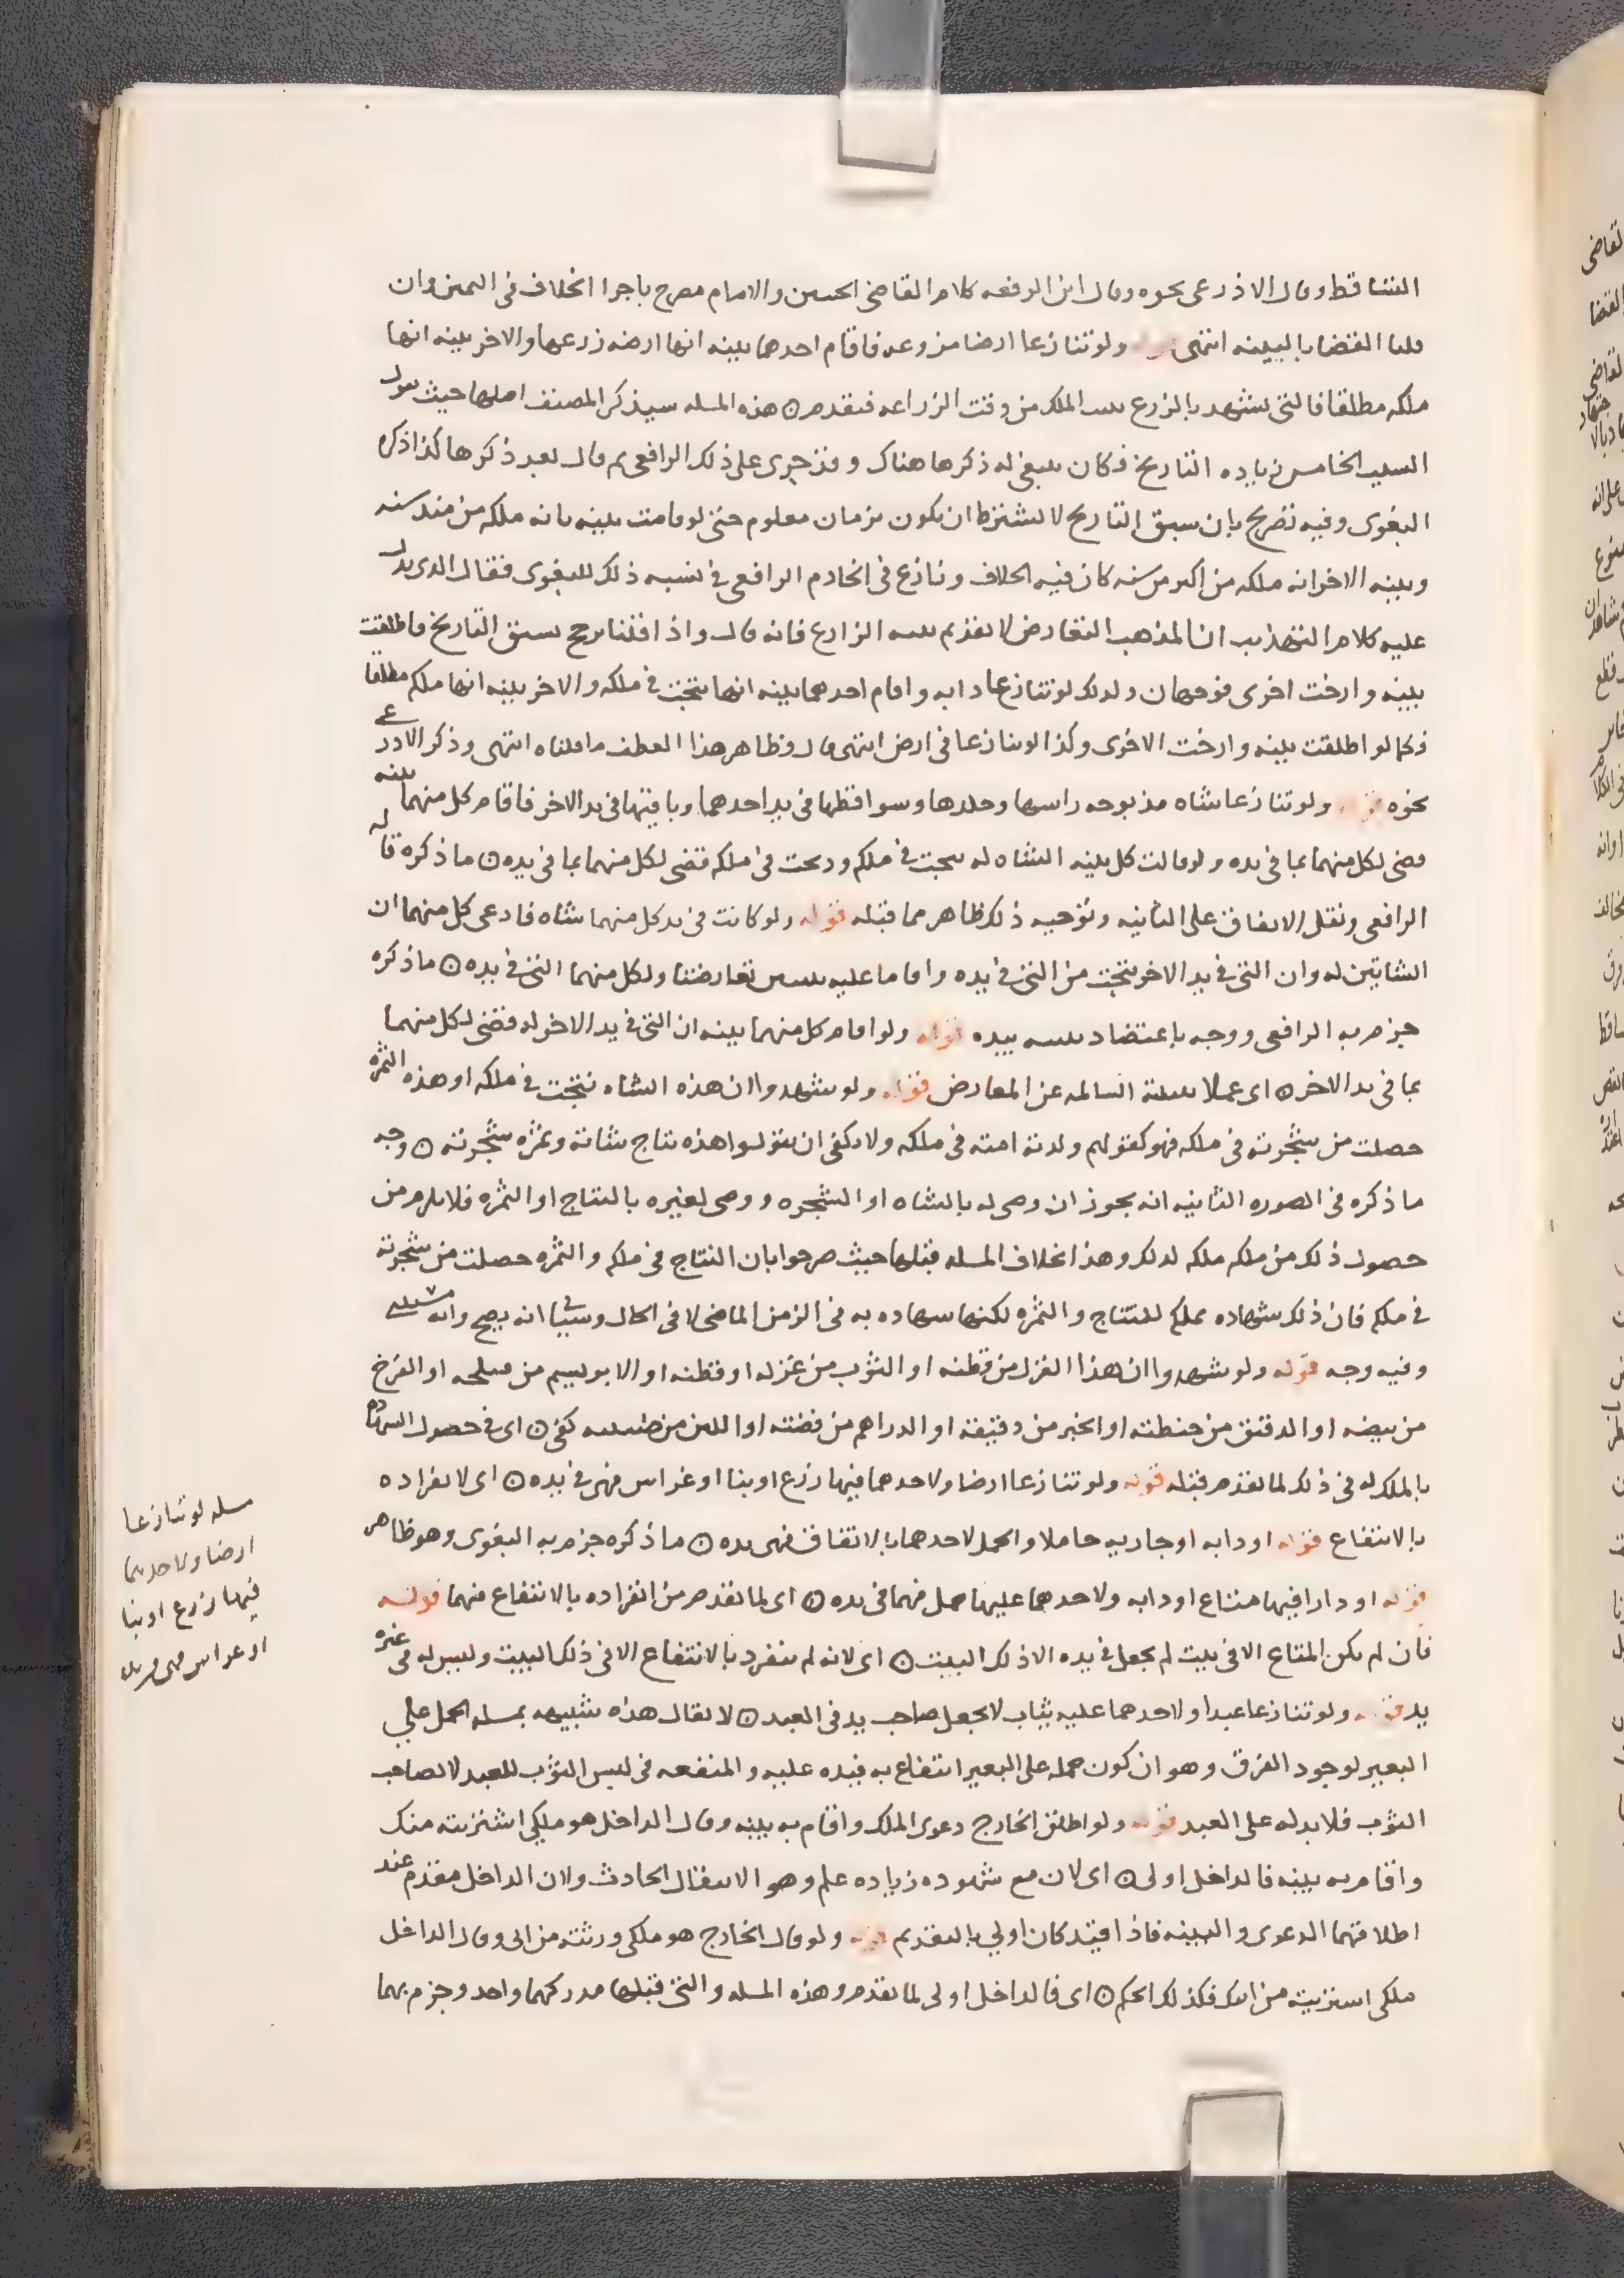 التساقط وقال الاذرعى نحوه وقال ابن الرفعه كلام القاضى الحسين والامام مصرح باجرا الخلاف فى اليمين وان
قلنا القضا بالبينه انتهى قوله ولو تنازعا ارضا مزروعه فاقام احدهما بينه انها ارضه زرعها والاخر بينه انها
ملكه مطلقا فالتى تشهد بالزرع تثبت الملك من وقت الزراعه فتقدم ٥ هذه المسله سيذكر المصنف اصلها حيث يقول
السبب الخامس زياده التاريخ فكان ينبغى له ذكرها هناك وقد جرى على ذلك الرافعى ثم قال بعد ذكرها كذا ذكره
البغوى وفيه تصريح بان سبق التاريخ لا يشترط ان يكون بزمان معلوم حتى لو قامت بينه بانه ملكه من منذ سنه
وبينه الاخر انه ملكه من اكثر من سنه كان فيه الخلاف ونازع فى الخادم الرافعى فى نسبه ذلك للبغوى فقال الذى يدل
عليه كلام التهذيب ان المذهب التعارض لا تقديم بينه الزارع فانه قال واذا قلنا يرجح بسبق التاريخ فاطلقت
بينه وارخت اخرى فوجهان وكذلك لو تنازعا دابه واقام احدهما بينه انها نتجت فى ملكه والاخر بينه انها ملكه مطلقا
فكما لو اطلقت بينه وارخت الاخرى وكذا لو تنازعا فى ارض انتهى قال وظاهر هذا العطف ما قلناه انتهى وذكر الاذرعى
نحوه قوله ولو تنازعا شاه مذبوحه راسها وجلدها وسواقطها فى يد احدهما وباقيها فى يد الاخر فاقام كل منهما بينه
قضى لكل منهما بما فى يده ولو قالت كل بينه الشاه له نتجت فى ملكه وذبحت فى ملكه قضى لكل منهما بما فى يده ٥ ما ذكره قاله
الرافعى ونقل الاتفاق على الثانيه وتوجيه ذلك ظاهر مما قبله قوله ولو كانت فى يد كل منهما شاه فادعى كل منهما ان
الشاتين له وان التى فى يد الاخر نتجت من التى فى يده واقاما عليه بينتين تعارضتا ولكل منهما التى فى يده ٥ ما ذكره
جزم به الرافعى ووجه باعتضاد بينته بيده قوله ولو اقام كل منهما بينه ان التى فى يد الاخر له قضى لكل منهما
بما فى يد الاخر ٥ اى عملا ببينته السالمه عن المعارض قوله ولو شهدوا ان هذه الشاه نتجت فى ملكه او هذه الثمره
حصلت من شجرته فى ملكه فهو كقولهم ولدته امته فى ملكه ولا يكفى ان يقولوا هذه نتاج شاته وثمره شجرته ٥ وجه
ما ذكره فى الصوره الثانيه انه يجوز ان وصى له بالشاه او الشجره ووصى لغيره بالنتاج او الثمره فلا يلزم من
حصول ذلك من ملكه ملكه لذلك وهذا بخلاف المسله قبلها حيث صرحوا بان النتاج فى ملكه والثمره حصلت من شجرته
فى ملكه فان ذلك شهاده بملك للنتاج والثمره لكنها شهاده به فى الزمن الماضى لا فى الحال وسياتى انه يصح وانه
وفيه وجه قوله ولو شهدوا ان هذا الغزل من قطنه او الثوب من غزله او قطنه او الابريسم من فيلجه او الفرخ
من بيضه او الدقيق من حنطته او الخبز من دقيقه او الدراهم من فضته او اللبن من كفى ٥ اى فى حصول الشهاده
بالملك له فى ذلك لما تقدم قبله قوله ولو تنازعا ارضا ولاحدهما فيها زرع او بنا او غراس فهى فى يده ٥ اى لانفراده
بالانتفاع قوله او دابه او جاريه حاملا والحمل لاحدهما بالاتفاق فهى بيده ٥ ما ذكره جزم به البغوى وهو ظاهر
قوله او دارا فيها متاع او دابه ولاحدهما عليها حمل فهما فى يده ٥ اى لما تقدم من انفراده بالانتفاع منهما قوله
فان لم يكن المتاع الا فى بيت لم يجعل فى يده الا ذلك البيت ٥ اى لانه لم ينفرد بالانتفاع الا فى ذلك البيت وليس له فى غيره
يد قوله ولو تنازعا عبدا ولاحدهما عليه ثياب لا يجعل صاحب يد فى العبد ٥ لا يقال هذه شبيهه بمسله الحمل على
البعير لوجود الفرق وهو ان كون حمله على البعير انتفاع به فيده عليه والمنفعه فى لبس الثوب للعبد لا لصاحب
الثوب فلا يد له على العبد قوله ولو اطلق الخارج دعوى الملك واقام به بينه وقال الداخل هو ملكى اشتريته منك
واقام به بينه فالداخل اولى ٥ اى لان مع شهوده زياده علم وهو الانتقال الحادث ولان الداخل مقدم عند
اطلاقهما الدعوى والبينه فاذا قيد كان اولى بالتقديم قوله ولو قال الخارج هو ملكى ورثته من ابى وقال الداخل
ملكى اشتريته من ابيك فكذلك الحكم ٥ اى فالداخل اولى لما تقدم وهذه المسله والتى قبلها مدركهما واحد وجزم بهما
مسله لو تنازعا
ارضا ولاحدهما
فيها زرع او بنا
او غراس فهى فى يده